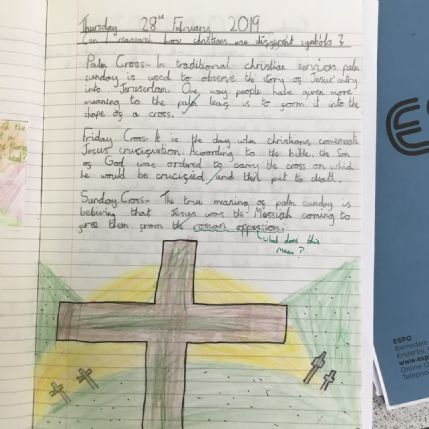 Thursday 28th February 2019
Can I research how christians use different symbols?
Palm Cross- In traditional christian services palm
sunday is used to observe the story of Jesus' entry
into Jerusarlem. One way people have given more
meaning to the palm leaf is to form it into the
shape of a cross.
Friday Cross- It is the day when christians commemorate
Jesus' crucifixtion. According to the bible, the Son
of God was ordered to carry the cross on which
he would be crucified and then put to death.
Sunday Cross- The true meaning of palm sunday is
beliving that Jesus was the Messiah coming to
free them from the roman oppession.
what does this
mean?
ESPO
Barnsdale
Enderby,
www.espo
Online C
Telepho